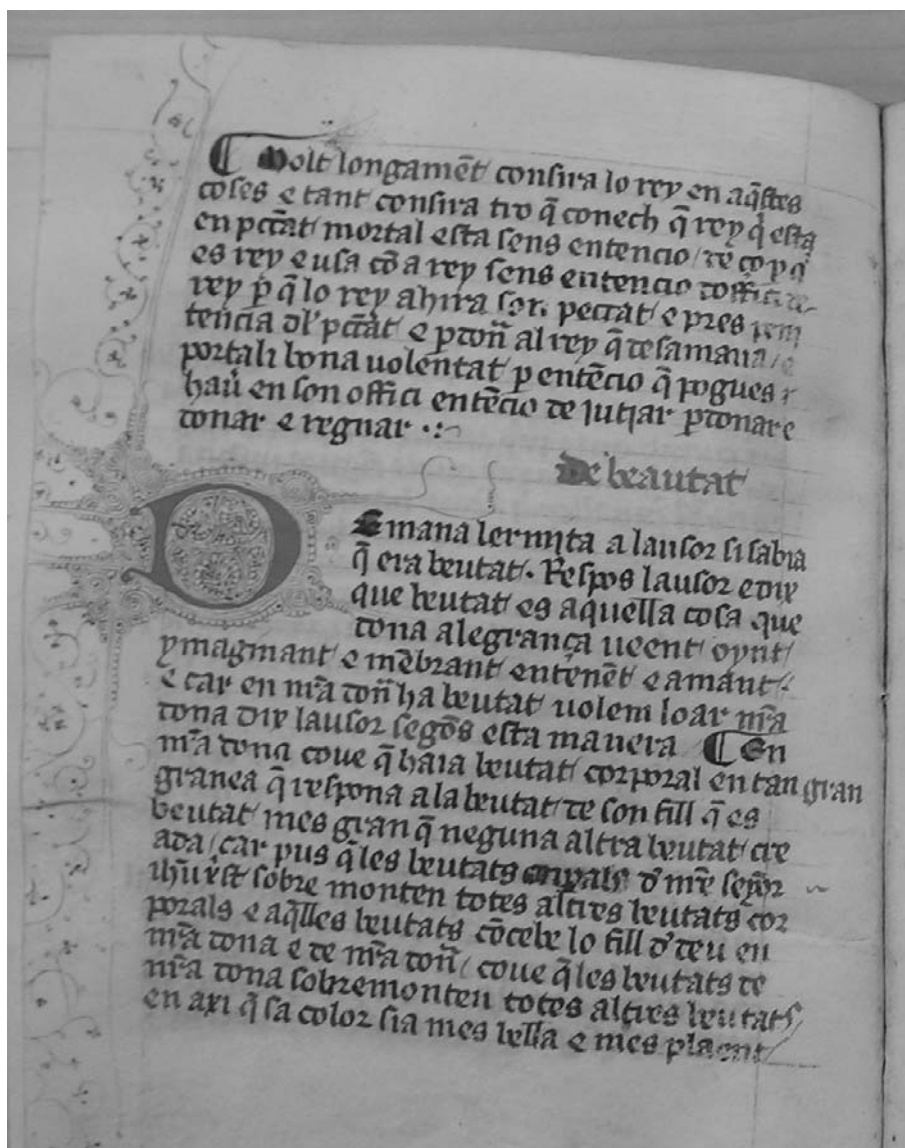 Molt longamēt consira lo rey en aq̄stes
coses e tant consira tro q̄ conech q̄ rey q̄ esta
en pcc̄at mortal esta sens entencio / de ço p q̄
es rey e usa cō a rey sens entencio doffici de
rey p̄ q̄ lo rey ahira son peccat e pres peni
tēcia dl' pcc̄at e pdoñ al rey q̄ desamaua / e
portali bona uolentat p entēcio q̄ pogues
hau̅ en son offici entēcio de jutjar pdonar e
donar e regnar .:
De beautat
DEmana lermita a lausor si sabia
q̄ era beutat. Respos lausor e dix
que beutat es aquella cosa que
dona alegrança ueent / oynt /
ymaginant e mēbrant entenēt e amant.
e car en nr̄a doñ ha beutat uolem loar nr̄a
dona dix lausor segōs esta manera En
nr̄a dona coue q̄ haia beutat corporal en tan gran
granea q̄ respona a la beutat de son fill q̄ es
beutat mes gran q̄ neguna altra beutat cre
ada / car pus q̄ les beutats d' nr̄e seyor
ih̄u xr̄st sobre monten totes altres beutats cor
porals e aq̄lles beutats cōcebe lo fill d' deu en
nr̄a dona e de nr̄a doñ / coue q̄ les beutats de
nr̄a dona sobremonten totes altres beutats /
en axi q̄ sa color sia mes bella e mes plaent /